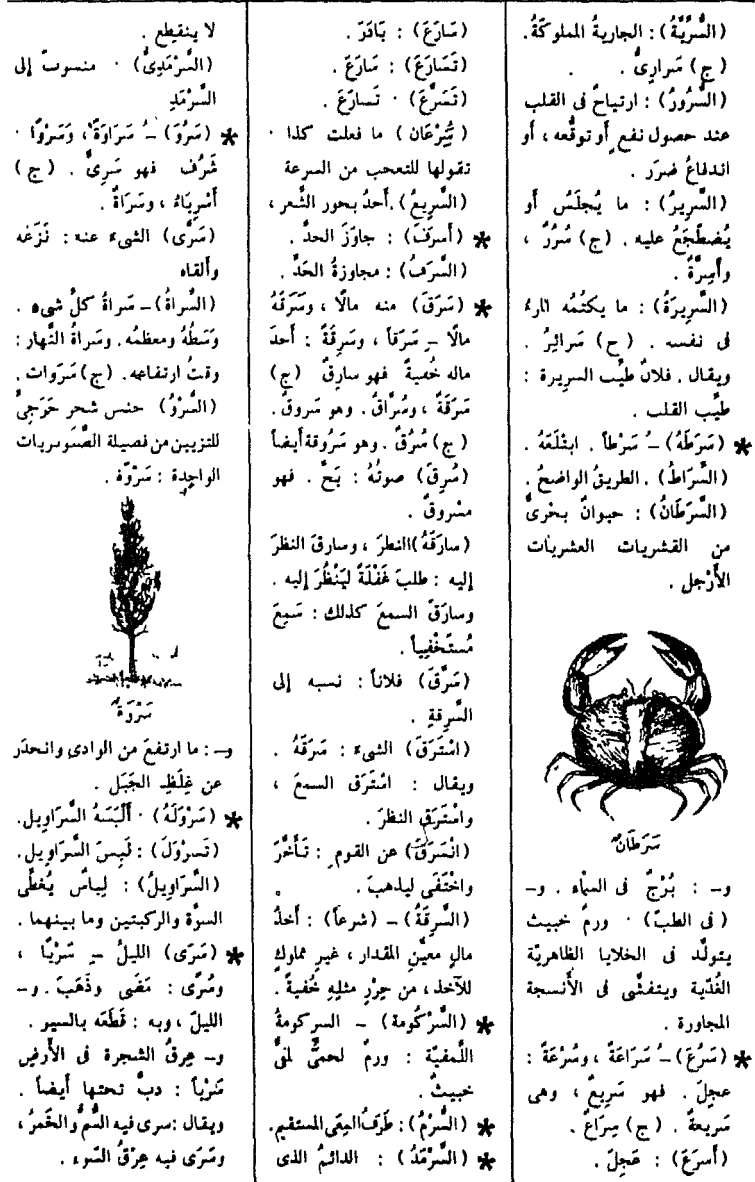 (السُّرِّيَّةُ) : الجاريةُ المملوكَةُ .
(ج) سَرارِىُّ .
(السُّرُورُ) : ارتياحٌ فى القلب
عند حصول نفع أو توقُّعه ، أو
اندفاعُ ضرَر .
(السَّرِيرُ) : ما يُجلَسُ أو
يُضطَجَعُ عليه . (ج) سُرُرٌ ،
وأَسِرَّةٌ .
(السَّرِيرَةُ) : ما يكتُمُه المرءُ
فى نفسه . (ج) سَرائِرُ .
ويقال . فلانٌ طيِّب السرِيرة :
طيِّب القلب .
* (سَرَطَهُ) ـُ سَرْطاً . ابتْلَعَهُ .
(السِّرَاطُ) . الطريقُ الواضحُ .
(السَّرَطَانُ) : حيوانٌ بحْرىٌّ
من القشريات العشريات
الأَرْجل .
سَرَطَانٌ
و– : بُرْجٌ فى السماء . و–
(فى الطبّ) . ورمٌ خبيث
يتولَّد فى الخلايا الظاهريّة
الغُدِّية ويتفشَّى فى الأَنسجة
المجاورة .
* (سَرُعَ) ـُ سَرَاعَةً ، وسُرْعَةً :
عجِلَ . فهو سَرِيعٌ ، وهى
سَرِيعةٌ . (ج) سِرَاعٌ .
(أَسرَعَ) : عَجِلَ .
(سَارَعَ) : بَادَرَ .
(تَسَارَعَ) : سَارَعَ .
(تَسَرَّعَ) . تَسارَعَ .
(سَُِرْعَان) ما فعلت كذا .
تقولها للتعجب من السرعة
(السَّرِيعُ) . أحدُ بحور الشِّعر ،
* (أَسرَفَ) : جاوَزَ الحدَّ .
(السَّرَفُ) : مجاوزةُ الحَدِّ .
* (سَرَقَ) منه مالًا ، وسَرَقَهُ
مالًا ـِ سَرَقاً ، وسَرِقَةً : أَخذَ
ماله خُفيةً فهو سارِقٌ (ج)
سَرَقَةٌ ، وسُرَّاقٌ . وهو سَروقٌ .
(ج) سُرُقٌ . وهو سَرُوقة أيضاً
(سُرِقَ) صوتُهُ : بَحَّ . فهو
مسْروقٌ .
(سارَقَهُ) النظرَ ، وسارقَ النظرَ
إليه : طلبَ غَفْلَةً ليَنْظُرَ إليه .
وسارَقَ السمعَ كذلك : سَمِعَ
مُستَخْفِياً .
(سَرَّقَ) فلاناً : نسبه إلى
السَّرِقةِ .
(اسْتَرَقَ) الشىءَ : سَرَقَهُ .
ويقال : اسْتَرَق السمعَ ،
واسْتَرَق النظرَ .
(انْسَرَقَ) عن القوم : تَأَخَّرَ
واخْتَفَى ليذهبَ .
(السَّرِقَةُ) – (شرعاً) : أَخذُ
مالٍ معيَّنِ المقدار ، غيرِ مملوكٍ
للآخذ ، من حِرْزِ مثلِهِ خُفيةً .
* (السَّرْكُومة) – السركومةُ
اللِّمفيّة : ورمٌ لحمىٌّ لمفىٌّ
خبيثٌ .
* (السُّرْمُ) : طَرَفُ المِعَى المستقيم .
* (السَّرْمَدُ) : الدائمُ الذى
لا ينقطِع .
(السَّرْمَدِىُّ) . منسوبٌ إلى
السَّرْمَدِ
* (سَرُوَ) ـُ سَرَاوَةً ، وَسَرْوًا .
شَرُف فهو سَرِىٌّ . (ج)
أَسْرِيَاءُ ، وسَرَاةٌ .
(سَرَّى) الشىءَ عنه : نَزَعَه
وأَلقاه
(السَّراةُ) – سَراةُ كلِّ شىءٍ .
وَسَطُهُ ومعظمُه . وسَراةُ النَّهار :
وقتُ ارتفاعِه . (ج) سَرَوات .
(السَّرْوُ) جنس شجر حَرَجِىٌّ
للتزيين من فصيلة الصَّنَوبريات
الواحِدة : سَرْوَة .
سَرْوَةٌ
و– : ما ارتفعَ من الوادى وانحدَر
عن غِلَظِ الجَبَل .
* (سَرْوَلَهُ) . أَلْبَسَهُ السَّرَاوِيل .
(تَسرْوَلَ) : لَبِسَ السَّرَاوِيل .
(السَّرَاوِيلُ) : لِباسٌ يُغطِّى
السرَّة والركبتين وما بينهما .
* (سَرَى) الليلُ ـِ سَرْيًا ،
وسُرًى : مَضَى وذَهَبَ . و–
الليلَ ، وبه : قَطَعَه بالسير .
و– عِرقُ الشجرة فى الأَرضِ
سَرْياً : دبَّ تحتها أَيضاً .
ويقال : سرى فيه السُّمُّ والخَمرُ ،
وسَرَى فيه عِرْقُ السّوء .